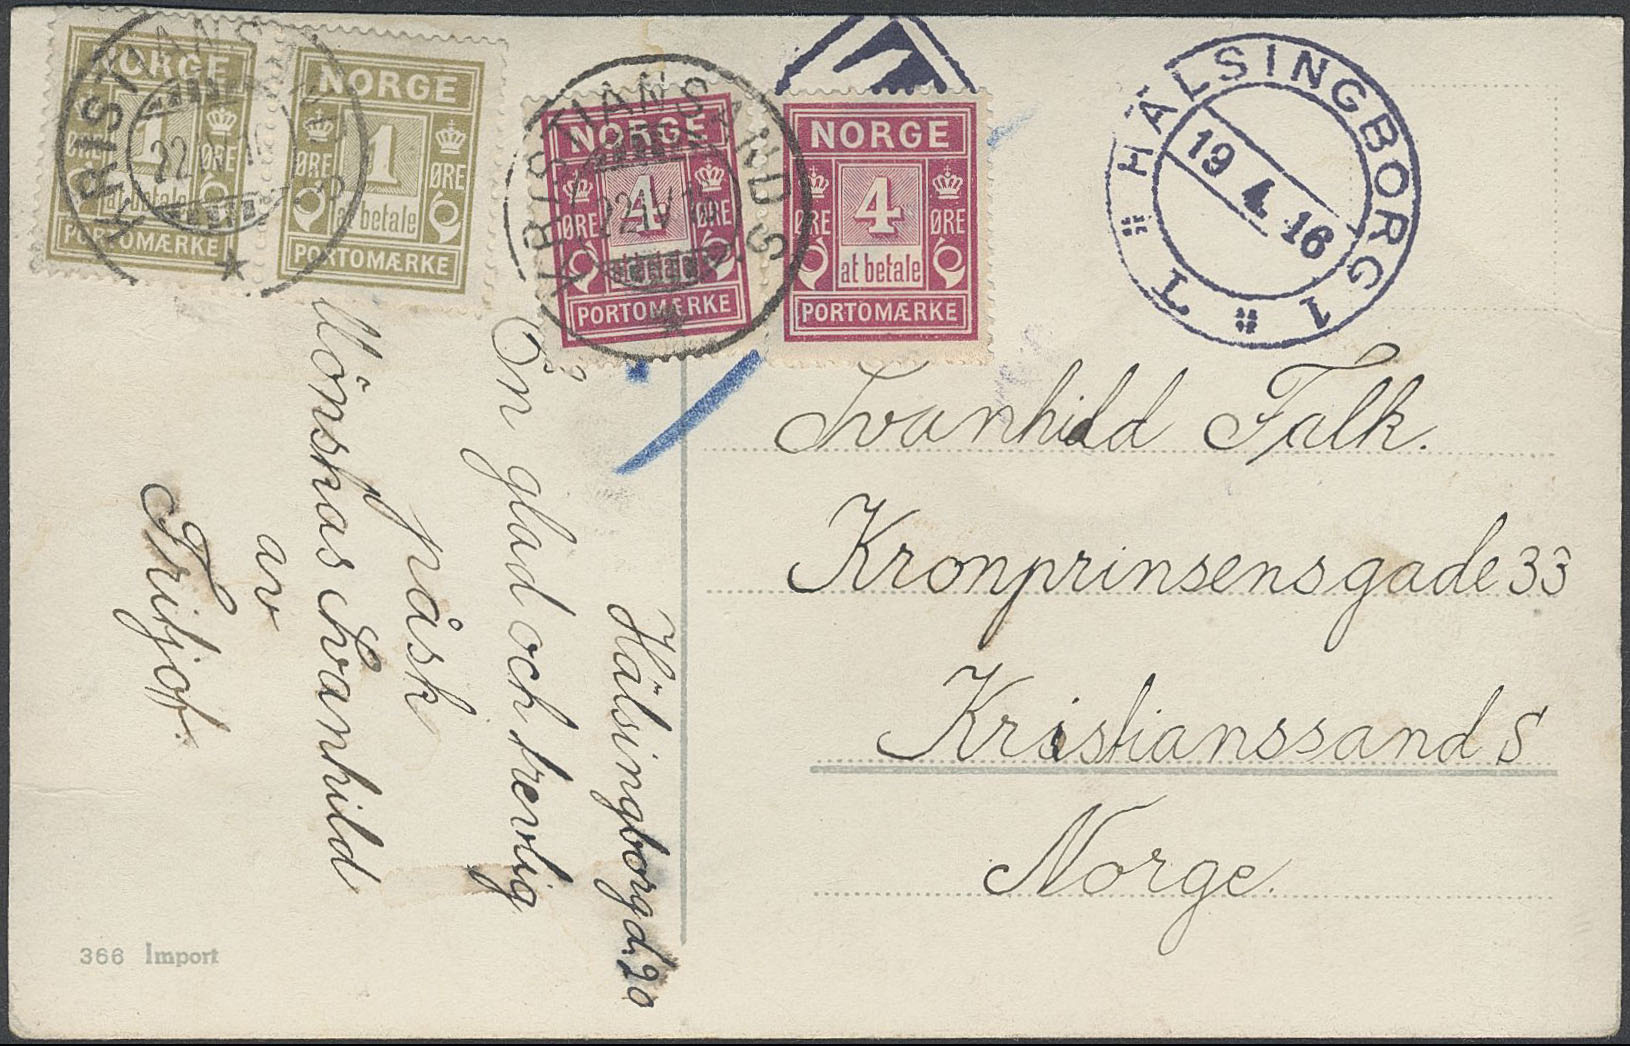 NORGE
1
ØRE ØRE
at betale
PORTOMÆRKE
NORGE
1
ØRE
at betale
PORTOMÆRKE
KRISTIANSAND S
22 IV 16
NORGE
4
ØRE ØRE
at betale
PORTOMÆRKE
NORGE
4
ØRE ØRE
at betale
PORTOMÆRKE
KRISTIANSAND S
22 IV 16
T
HÄLSINGBORG 1
19 4. 16
1
Hälsingborg d. 20
En glad och trevlig
påsk
Önskas Svanhild
av
Fritjof.
Svanhild Falk.
Kronprinsensgade 33
Kristianssand S
Norge.
366 Import